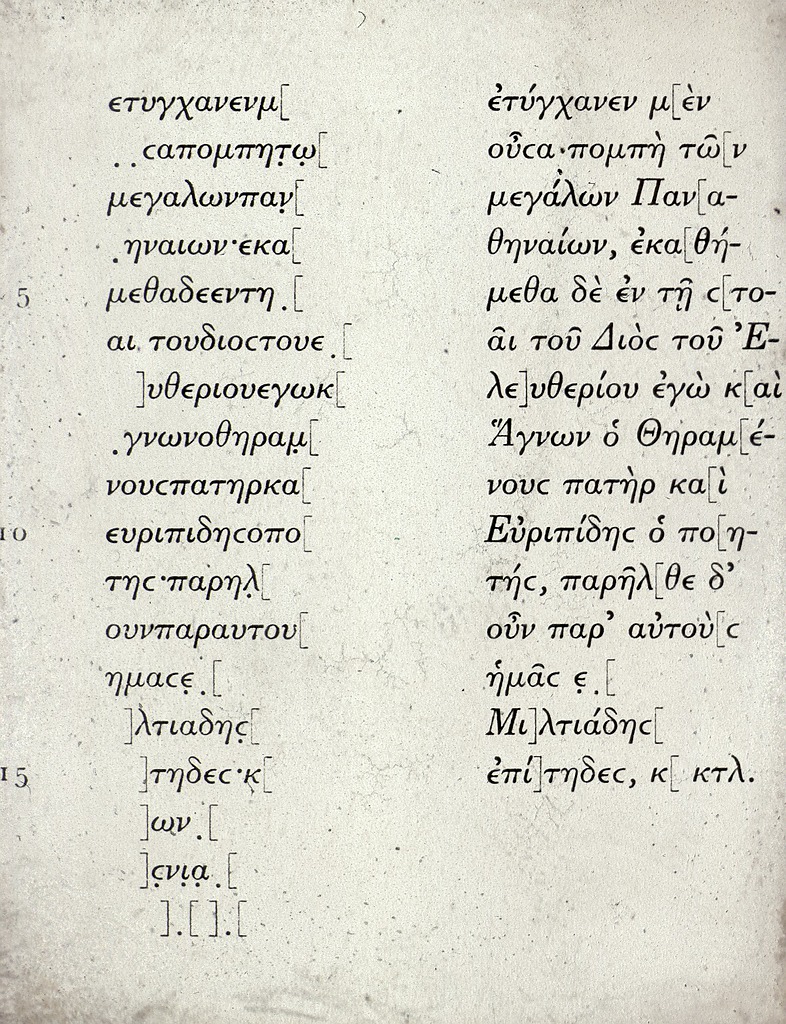 ετυγχανενμ[
. . ϲαπομπητ̣ω̣[
μεγαλωνπαν̣[
. ηναιων·εκα[
5 μεθαδεεντη . [
αι. τουδιοϲτουε . [
]υθεριουεγωκ[
. γνωνοθηραμ̣[
νουϲπατηρκα[
10 ευριπιδηϲοπο[
τηϲ·παρηλ̣[
ουνπαραυτου[
ημαϲε̣ . [
]λτιαδηϲ̣[
15 ]τηδεϲ·κ[
]ων . [
]ϲ̣νι̣α̣ . [
] . [ ] . [
ἐτύγχανεν μ[ὲν
οὖϲα·πομπὴ τῶ[ν
μεγάλων Παν[α-
θηναίων, ἐκα[θή-
μεθα δὲ ἐν τῇ ϲ[το-
ᾶι τοῦ Διὸϲ τοῦ Ἐ-
λε]υθερίου ἐγὼ κ[αὶ
Ἅγνων ὁ Θηραμ[έ-
νουϲ πατὴρ κα[ὶ
Εὐριπίδηϲ ὁ πο[η-
τήϲ, παρῆλ[θε δ’
οὖν παρ’ αὐτοὺ[ϲ
ἡμᾶϲ ε̣ . [
Μι]λτιάδηϲ[
ἐπί]τηδεϲ, κ[ κτλ.